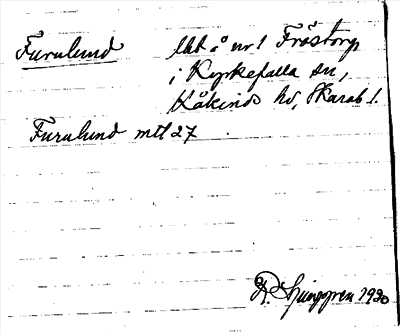 Furulund lht å nr 1 Fröstorp
i Kyrkefalla sn,
Kåkinds hd, Skarab l.
Furulund mtl 27
R. Ljunggren 1930